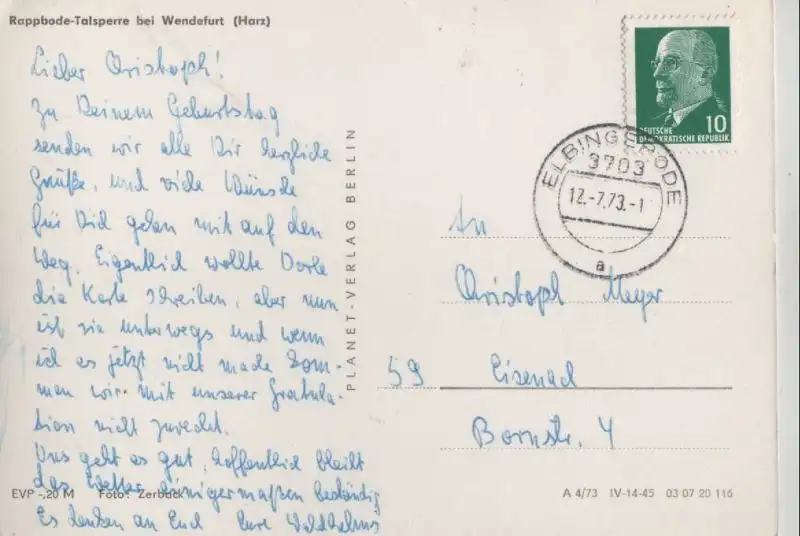 Rappbode-Talsperre bei Wendefurt (Harz)
Lieber Christoph!
Zu Deinem Geburtstag
senden wir alle Dir herzliche
Grüße, und viele Wünsche
für Dich gehen mit auf den
Weg. Eigentlich wollte Dorle
die Karte schreiben, aber nun
ist sie unterwegs und wenn
ich es jetzt nicht mache kom-
men wir mit unserer Gratula-
tion nicht zurecht.
Uns geht es gut, hoffentlich bleibt
das Wetter einigermaßen beständig
Es denken an Euch Eure Waldhelms
EVP -,20 M Foto: Zerback
PLANET-VERLAG BERLIN
10
DEUTSCHE
DEMOKRATISCHE REPUBLIK
ELBINGERODE
3703
12.-7.73.-1
a
An
Christoph Meyer
59 Eisenach
Bornstr. 4
A 4/73 IV-14-45 03 07 20 116